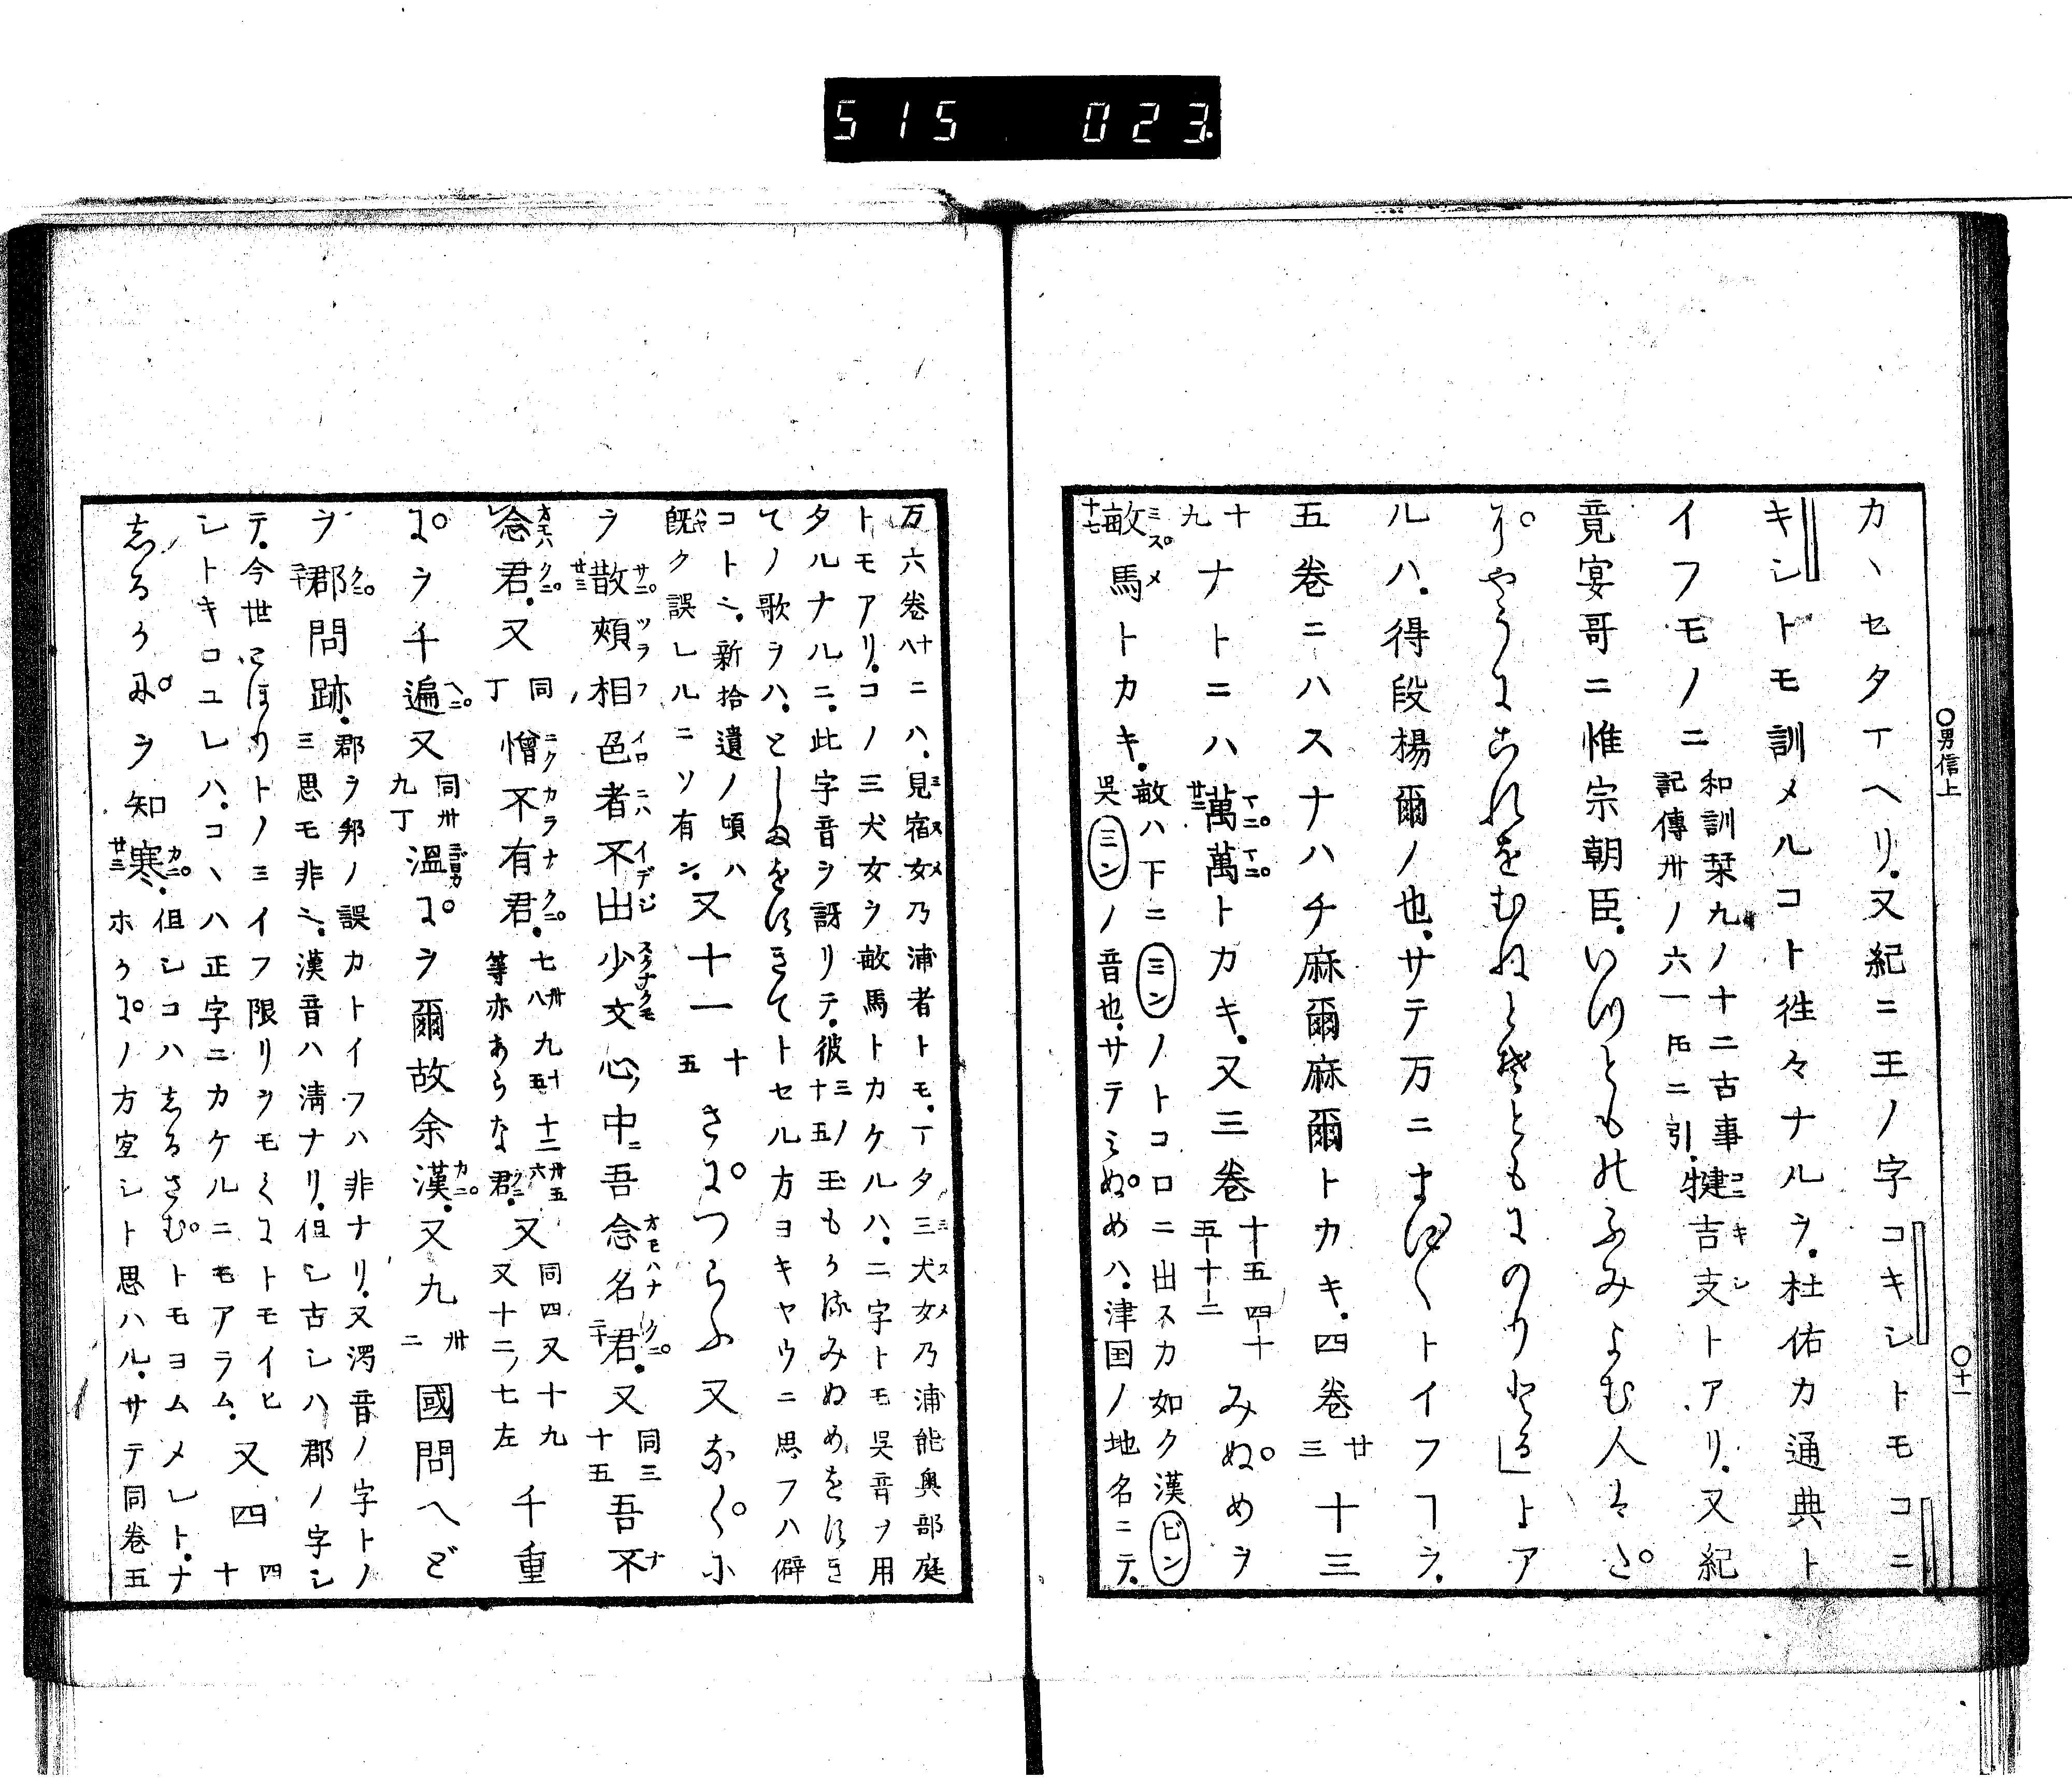 515 023
○男信上
○十一
カヽセタマヘリ.又紀ニ王ノ字コキシトモコニ
キシトモ訓メルコト徃々ナルヲ.杜佑カ通典ト
イフモノニ
和訓栞九ノ十二古事
記傳卅ノ六一
ニ引.
犍吉支トアリ.又紀
竟宴哥ニ惟宗朝臣.いつとものふみよむ人は
ルハ.得段楊爾ノ也.サテ万ニまに〱トイフヿヲ.
五卷ニハスナハチ麻爾麻爾トカキ.四卷
廿三
十三
十九
ナトニハ
廿二
萬萬トカキ.又三卷
十五 四十
五十二
みぬめヲ
十七
敏馬トカキ.
敏ハ下ニミンノトコロニ出スカ如ク漢ビン
吳ミンノ音也.サテみぬめハ.津国ノ地名ニテ.
万六卷十八ニハ.見宿女乃浦者トモ.マタ三犬女乃浦能奥部庭
トモアリ.コノ三犬女ヲ敏馬トカケルハ.二字トモ呉音ヲ用
タルナルニ.此字音ヲ訝リテ.彼三ノ十五玉もかるみぬめをすき
てノ歌ヲハ.としまをすきてトセル方ヨキヤウニ思フハ僻
コトニ.新拾遺ノ頃ハ
既ク誤レルニソ有ン.
又十一
十五
さにつらふ又なくに
ヲ
廿三
散頰相色者不出少文心中吾念名君.又
同三
十五
吾不
念君.又
同
丁
憎不有君.
七卅八 九十五 十二卅五六
等亦あらな君.
又
同四又十九
又十二ノ七左
千重
にヲ千遍又
同卅
九丁
溫にヲ爾故余漢.又九
卅二
國問へど
ヲ郡問跡.
郡ヲ邦ノ誤カトイフハ非ナリ.又濁音ノ字トノ
三思モ非ニ.漢音ハ淸ナリ.但シ古シハ郡ノ字シ
テ.今世こほりトノミイフ限リヲモくにトモイヒ
シトキコユレハ.コヽハ正字ニカケルニモアラム.
又四
四十
しるかにヲ知
廿三
寒.
但シコハしるさむトモヨムメレト.ナ
ホかにノ方宜シト思ハル.サテ同卷五